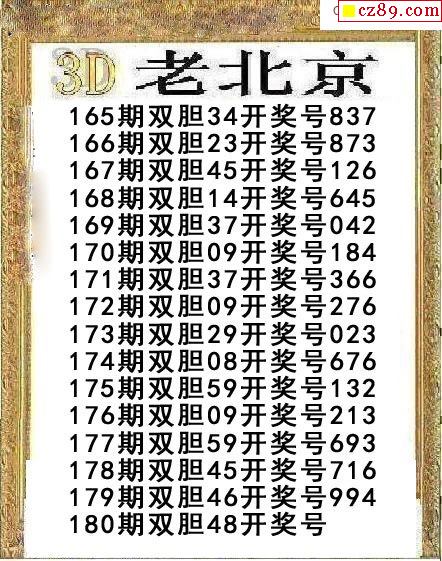 cz89.com
3D 老北京
165期双胆34开奖号837
166期双胆23开奖号873
167期双胆45开奖号126
168期双胆14开奖号645
169期双胆37开奖号042
170期双胆09开奖号184
171期双胆37开奖号366
172期双胆09开奖号276
173期双胆29开奖号023
174期双胆08开奖号676
175期双胆59开奖号132
176期双胆09开奖号213
177期双胆59开奖号693
178期双胆45开奖号716
179期双胆46开奖号994
180期双胆48开奖号